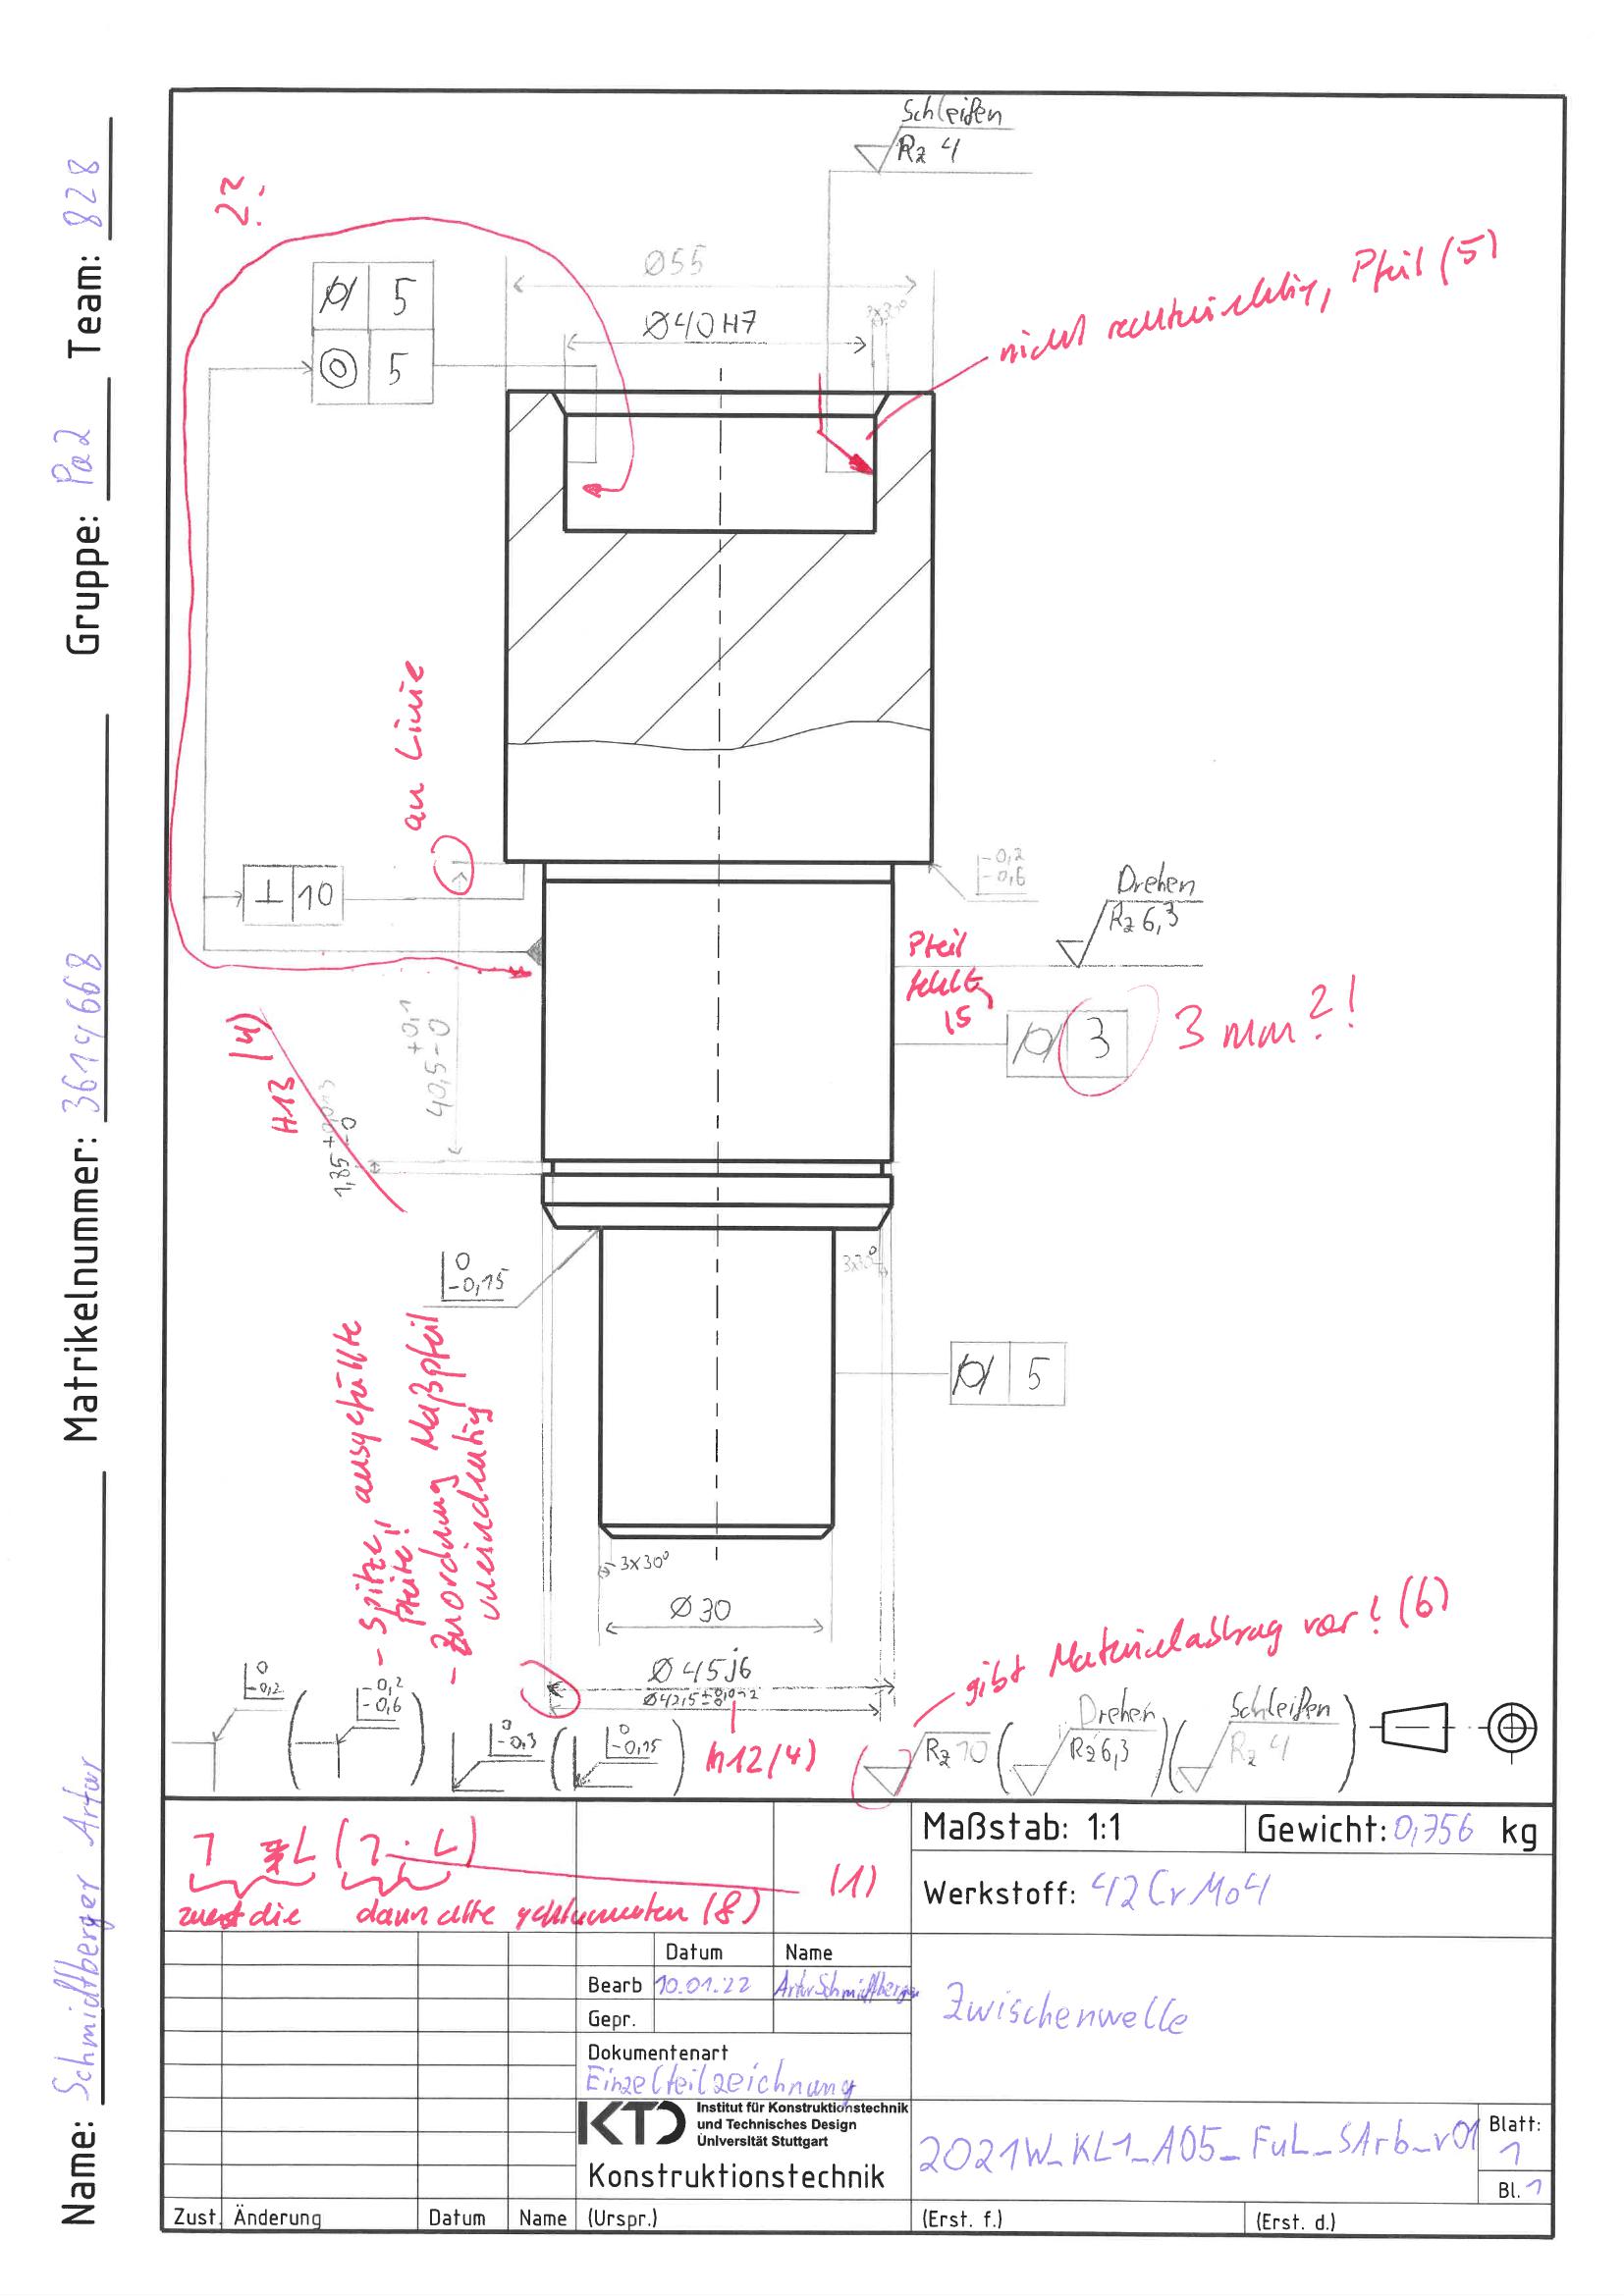 Name: Schmidtberger Artur
Matrikelnummer: 3614668
Gruppe: Pa2
Team: 828
Schleifen
Rz 4
2?
5
5
Ø55
3x30°
Ø40H7
nicht rechtwinklig, Pfeil (5)
an Linie
⊥ 10
-0,2
-0,6
Drehen
Rz 6,3
Pfeil
fehlt,
15
3
3 mm?!
40,5 +0,1 -0
(4)
H13
1,85 -0
0
-0,15
3x30°
5
- Spitze, ausgefüllte
Pfeile!
- Zuordnung Maßpfeil
uneindeutig
3x30°
Ø30
Ø45j6
Ø42,5
h12 (4)
gibt Materialabtrag vor! (6)
0
-0,2
-0,2
-0,6
0
-0,3
0
-0,15
Rz 10
Drehen
Rz 6,3
Schleifen
Rz 4
(1)
zuerst die dann alte (8)
Maßstab: 1:1
Gewicht: 0,756 kg
Werkstoff: 42CrMo4
Datum Name
Bearb 10.01.22 Artur Schmidtberger
Gepr.
Zwischenwelle
Dokumentenart
Einzelteilzeichnung
KTD
Institut für Konstruktionstechnik
und Technisches Design
Universität Stuttgart
Konstruktionstechnik
2021W_KL1_A05_FuL_SArb_v01
Blatt:
1
Bl. 1
Zust. Änderung Datum Name (Urspr.) (Erst. f.) (Erst. d.)